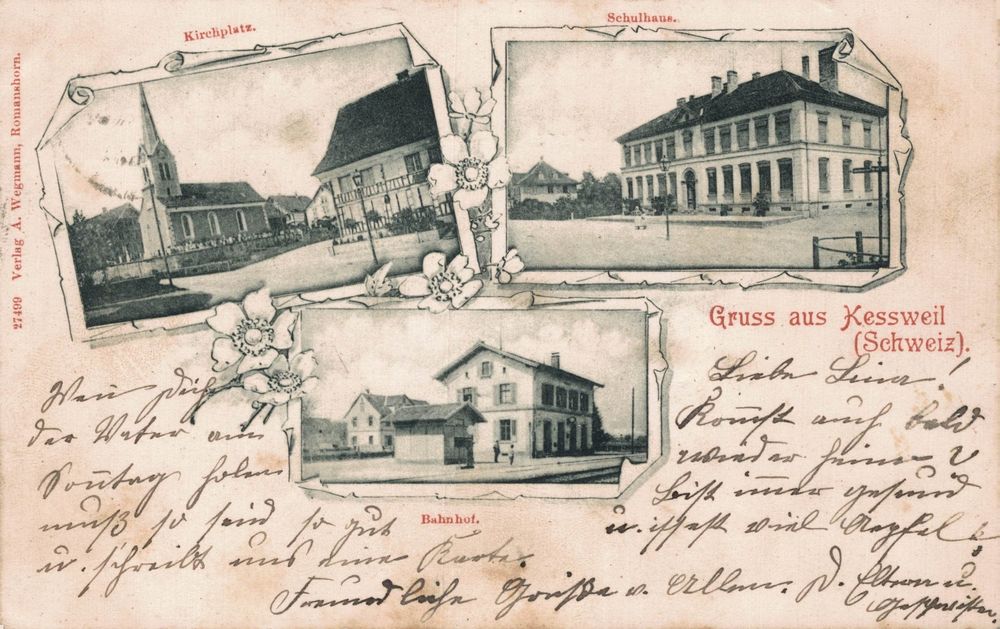 Kirchplatz.
Schulhaus.
27499 Verlag A. Wegmann, Romanshorn.
Gruss aus Kessweil
(Schweiz).
Liebe Lina!
Kom̅st auch bald
wieder heim?
Bist im̅er gesund
u. issest viel Aepfel?
Wen̅ Dich
der Vater am
Son̅tag holen
muß so seid so gut
u. schreibt uns eine Karte.
Bahnhof.
Freundliche Grüße v. Allen. D. Eltern u.
Geschwister.